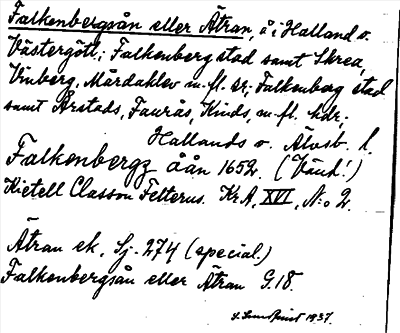 Falkenbergsån eller Ätran, å i Halland o.
Västergötl.; Falkenberg stad samt Skrea,
Vinberg, Mårdaklev m. fl. sr; Falkenberg stad
samt Årstads, Faurås, Kinds, m. fl. hdr;
Hallands o. Älvsb. l.
Falkenbergz åån 1652. (Vänd!)
Kietell Classon Felterus. Kr.A, XVI, N:o 2.
Ätran ek. Sj. 274 (special.)
Falkenbergsån eller Ätran G.18.
1937.